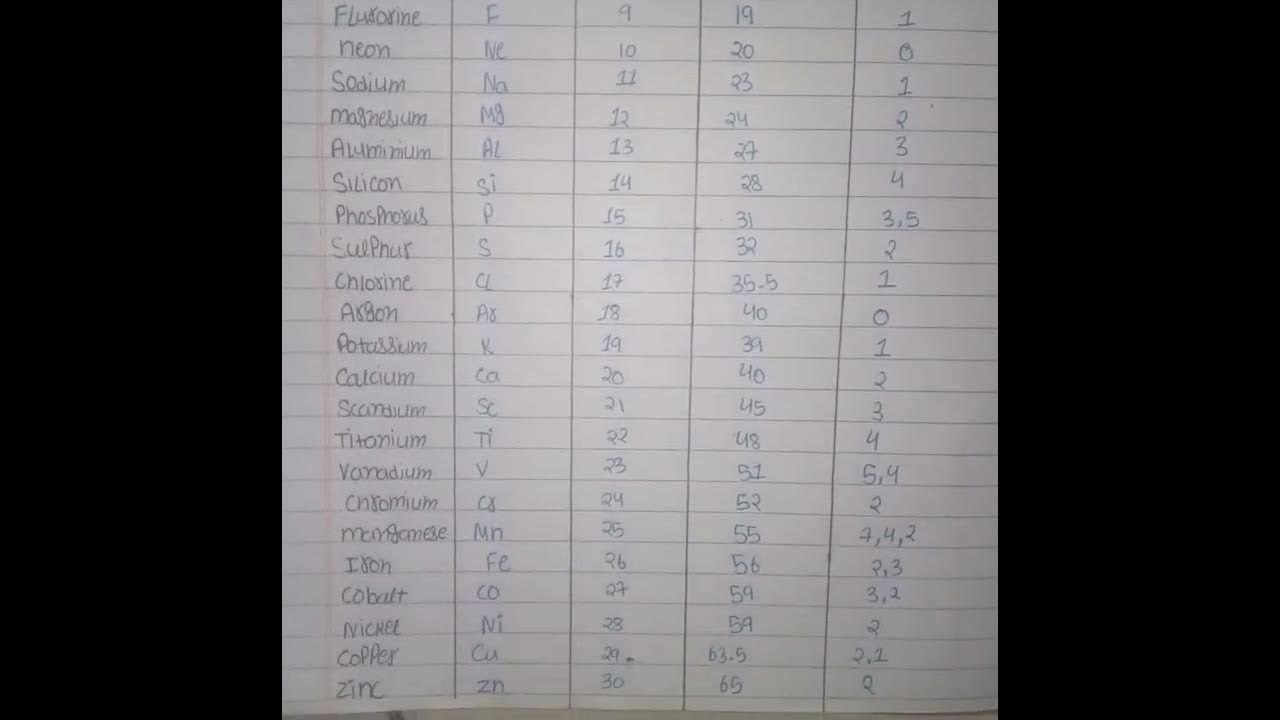 Flurorine F 9 19 1
neon Ne 10 20 0
Sodium Na 11 23 1
magnesium Mg 12 24 2
Aluminium Al 13 27 3
Silicon Si 14 28 4
Phosphorus P 15 31 3,5
Sulphur S 16 32 2
Chlorine Cl 17 35.5 1
Argon Ar 18 40 0
Potassium K 19 39 1
Calcium Ca 20 40 2
Scandium Sc 21 45 3
Titanium Ti 22 48 4
Vanadium V 23 51 5,4
Chromium Cr 24 52 2
manganese Mn 25 55 7,4,2
Iron Fe 26 56 2,3
Cobalt CO 27 59 3,2
Nickel Ni 28 59 2
Copper Cu 29 63.5 2,1
Zinc Zn 30 65 2